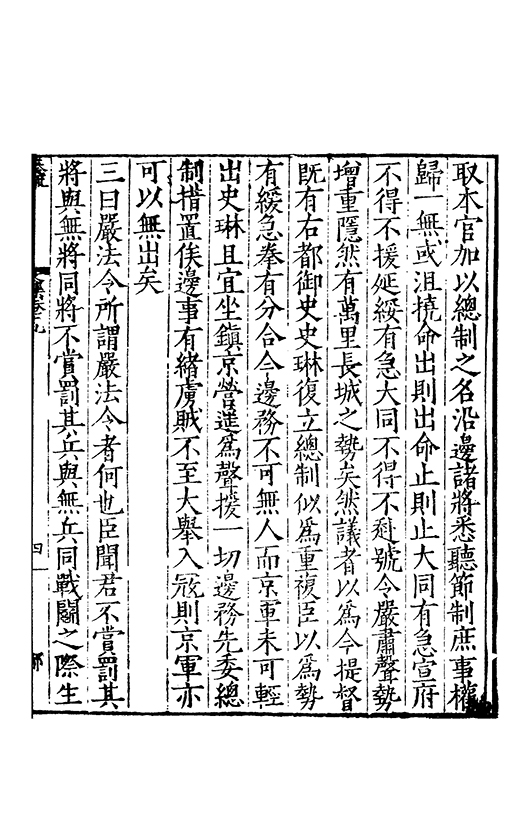 取本官加以總制之名沿邊諸將悉聽節制庶事權
歸一無或沮撓命出則出命止則止大同有急宣府
不得不援延綏有急大同不得不赴號令嚴肅聲勢
增重隱然有萬里長城之勢矣然議者以為今提督
既有右都御史史琳復立總制似為重複臣以爲勢
有緩急拳有分合今邊務不可無人而京軍未可輕
出史琳且宜坐鎮京營遥爲聲援一切邊務先委總
制措置俟邊事有緒虜賊不至大舉入冦則京軍亦
可以無出矣
三曰嚴法令所謂嚴法令者何也臣聞君不賞罰其
將與無將同將不賞罰其兵與無兵同戰鬬之際生
四